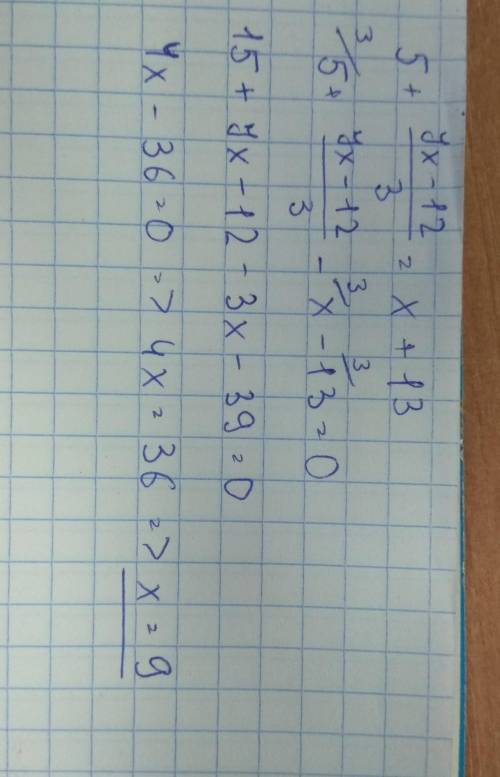 5 + (7x-12)/3 = x + 13
3/ 5 + (7x-12)/3 - 3/ x - 3/ 13 = 0
15 + 7x - 12 - 3x - 39 = 0
4x - 36 = 0 => 4x = 36 => x = 9